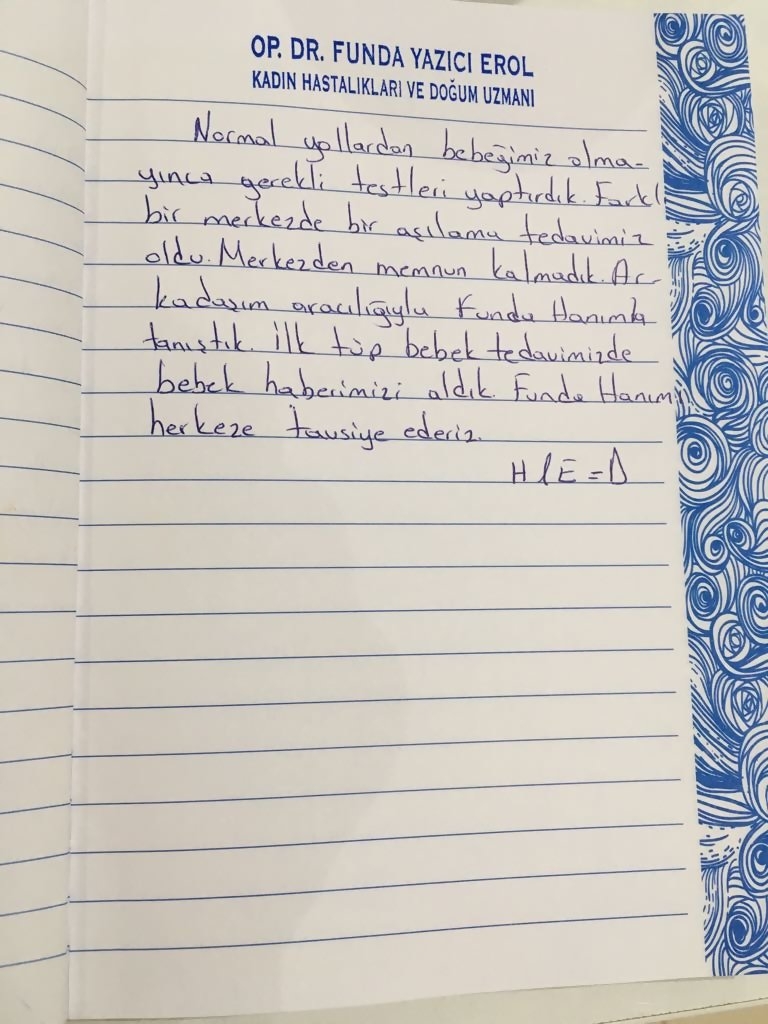 OP. DR. FUNDA YAZICI EROL
KADIN HASTALIKLARI VE DOĞUM UZMANI
Normal yollardan bebeğimiz olma-
yınca gerekli testleri yaptırdık. Farklı
bir merkezde bir aşılama tedavimiz
oldu. Merkezden memnun kalmadık. Ar-
kadaşım aracılığıyla Funda Hanımla
tanıştık. İlk tüp bebek tedavimizde
bebek haberimizi aldık. Funda Hanımı
herkeze tavsiye ederiz.